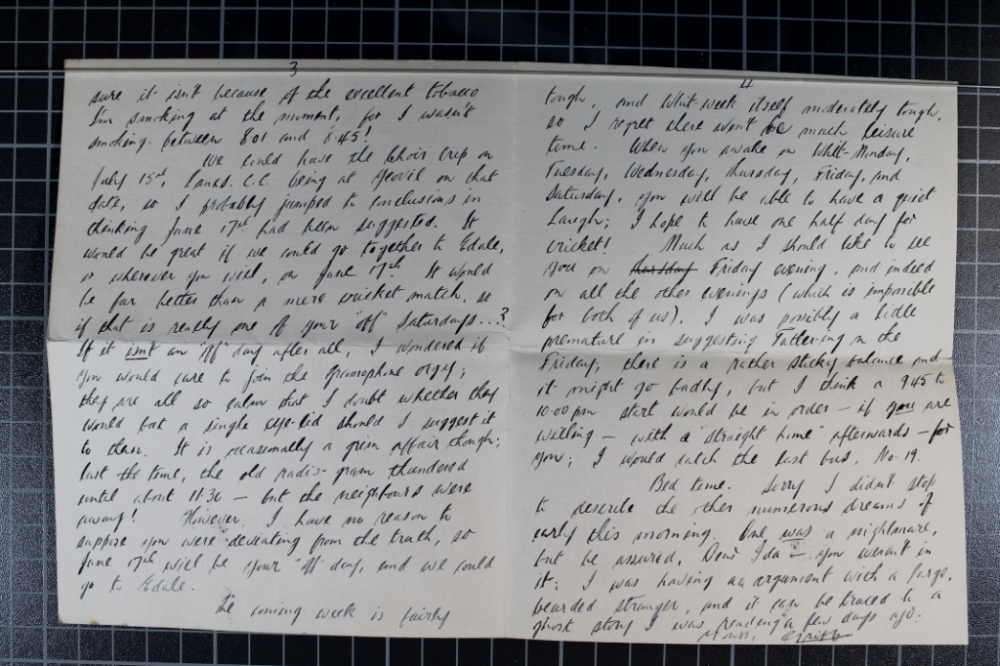 3
sure it isn't because of the excellent tobacco
I'm smoking at the moment, for I wasn't
smoking between 8.01 and 8.45!
We could have the Choir trip on
July 15th, Lancs. C.C. being at Yeovil on that
date, so I probably jumped to conclusions in
thinking June 17th had been suggested. It
would be great if we could go together to Edale,
or wherever you will, on June 17th. It would
be far better than a mere cricket match, so
if that is really one of your "off" Saturdays...?
If it isn't an "off" day after all, I wondered if
you would care to join the gramophone orgy;
they are all so calm that I doubt whether they
would bat a single eye-lid should I suggest it
to them. It is occasionally a grim affair though;
last the time, the old radio-gram thundered
until about 11.30 — but the neighbours were
away! However, I have no reason to
suppose you were deviating from the truth, so
June 17th will be your "off" day, and we could
go to Edale.
The coming week is fairly
4
tough, and Whit-week itself moderately tough,
so I regret there won't be much leisure
time. When you awake on Whit-Monday,
Tuesday, Wednesday, Thursday, Friday, and
Saturday, you will be able to have a quiet
laugh; I hope to have one half day for
cricket! Much as I should like to see
you on Thursday Friday evening, and indeed
on all the other evenings (which is impossible
for both of us), I was possibly a little
premature in suggesting on the
Friday; there is a rather sticky balance and
it might go badly, but I think a 9.45 to
10.00 pm start would be in order — if you are
willing — with a "straight home" afterwards — for
you; I would catch the last bus, No. 19.
Bed time. Sorry I didn't stop
to describe the other numerous dreams of
early this morning. One was a nightmare,
but be assured, Dear Ida — you weren't in
it; I was having an argument with a large,
bearded stranger, and it can be traced to a
ghost story I was reading a few days ago.
Yours,